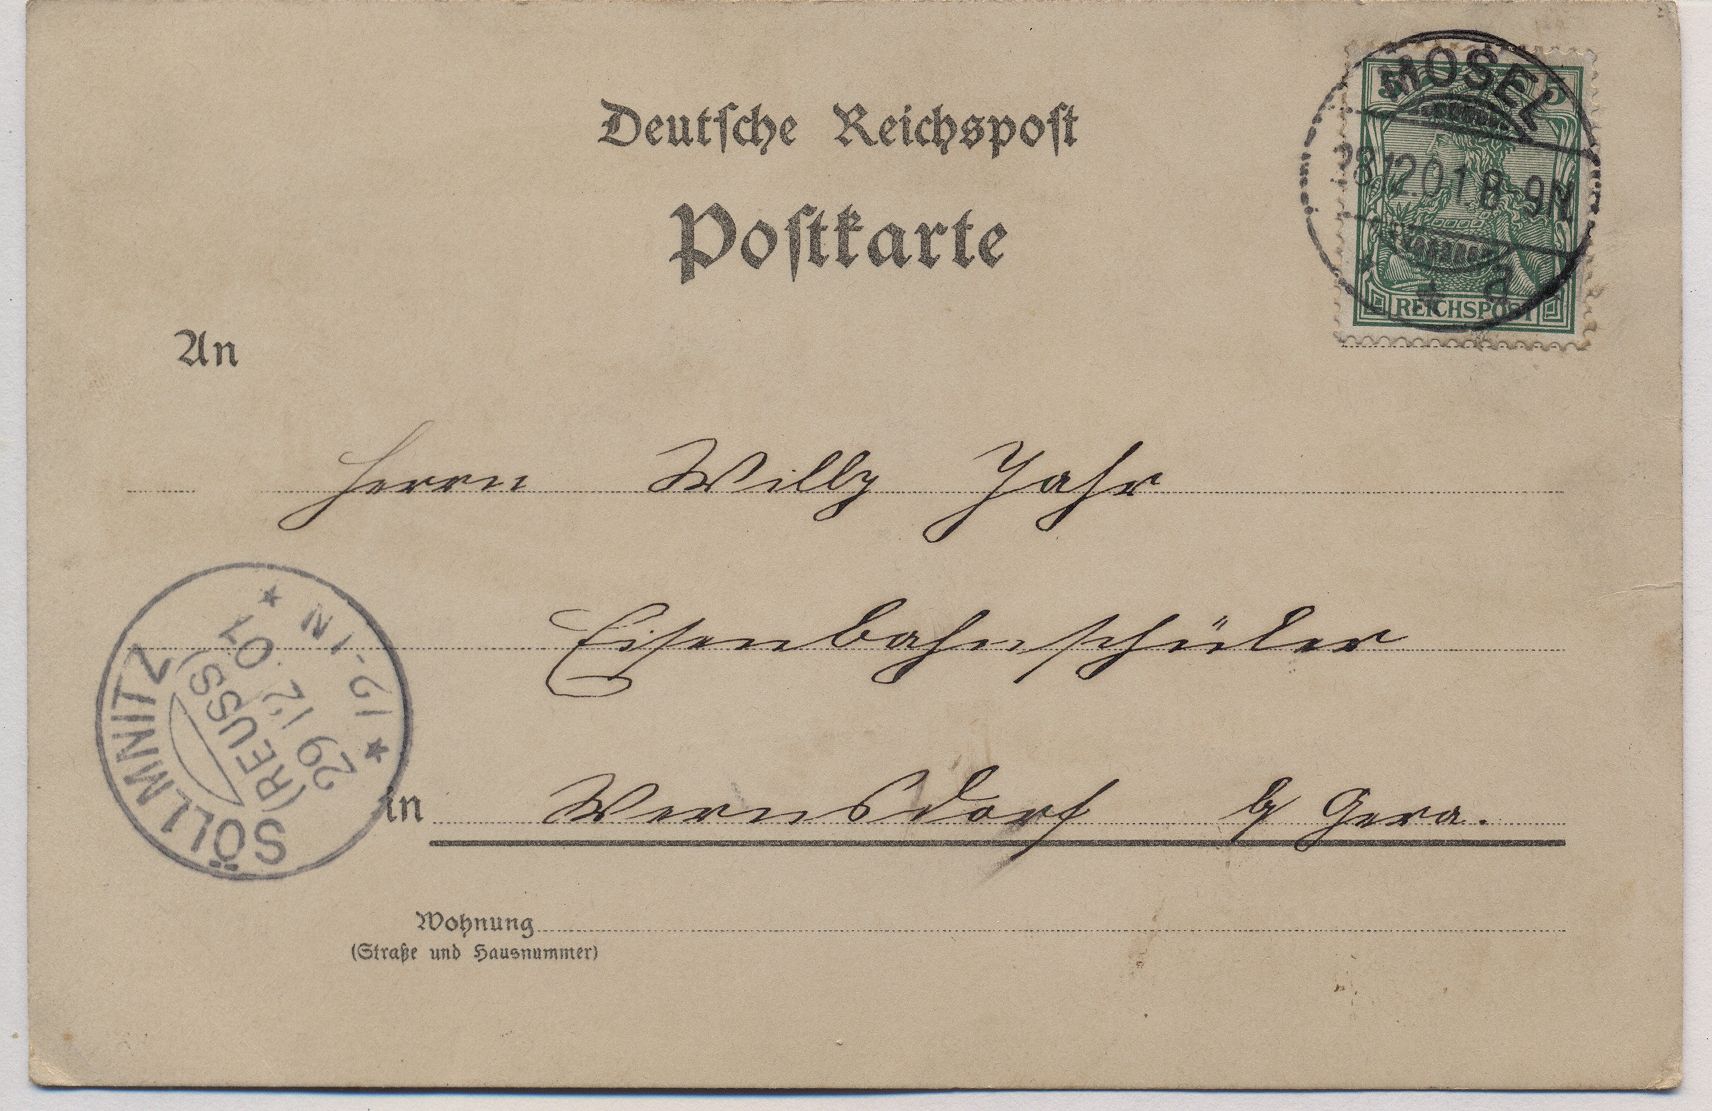 Deutsche Reichspost
Postkarte
5 5
MOSEL
28 12 01. 8-9N
* a
REICHSPOST
An
Herrn Willy Jahr
Eisenbahnschüler
in Wernsdorf b/ Gera.
SÖLLMNITZ
(REUSS)
29 12 01
* 12-1N *
Wohnung
(Straße und Hausnummer)